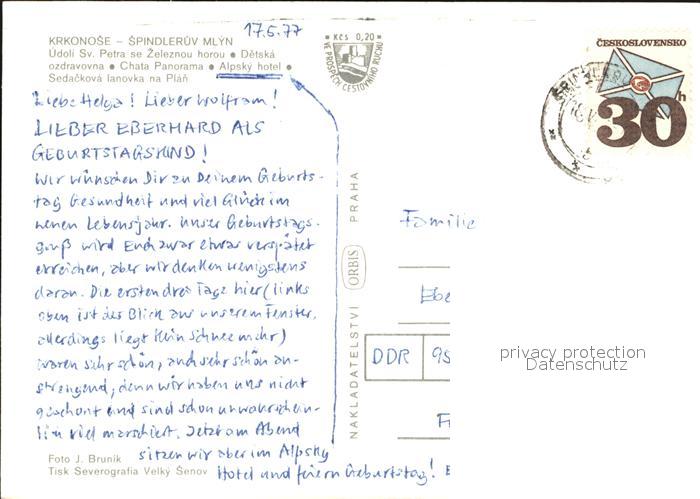 17.5.77
KRKONOŠE – ŠPINDLERŮV MLÝN
Údolí Sv. Petra se Železnou horou ● Dětská
ozdravovna ● Chata Panorama ● Alpský hotel ●
Sedačková lanovka na Pláň
Kčs 0,20
VE PROSPĚCH CESTOVNÍHO RUCHU
ČESKOSLOVENSKO
30h
Liebe Helga! Lieber Wolfram!
LIEBER EBERHARD ALS
GEBURTSTAGSKIND!
Wir wünschen Dir zu Deinem Geburts-
tag Gesundheit und viel Glück im
neuen Lebensjahr. Unser Geburtstags-
gruß wird Euch zwar etwas verspätet
erreichen, aber wir denken wenigstens
daran. Die ersten drei Tage hier (links
oben ist der Blick aus unserem Fenster,
allerdings liegt kein Schnee mehr)
waren sehr schön, auch sehr schön an-
strengend, denn wir haben uns nicht
geschont und sind schon unwahrschein-
lich viel marschiert. Jetzt am Abend
sitzen wir aber im Alpsky
Hotel und feiern Geburtstag!
Foto J. Bruník
Tisk Severografia Velký Šenov
NAKLADATELSTVÍ ORBIS PRAHA
Familie
Ebe
DDR 95
F
privacy protection
Datenschutz